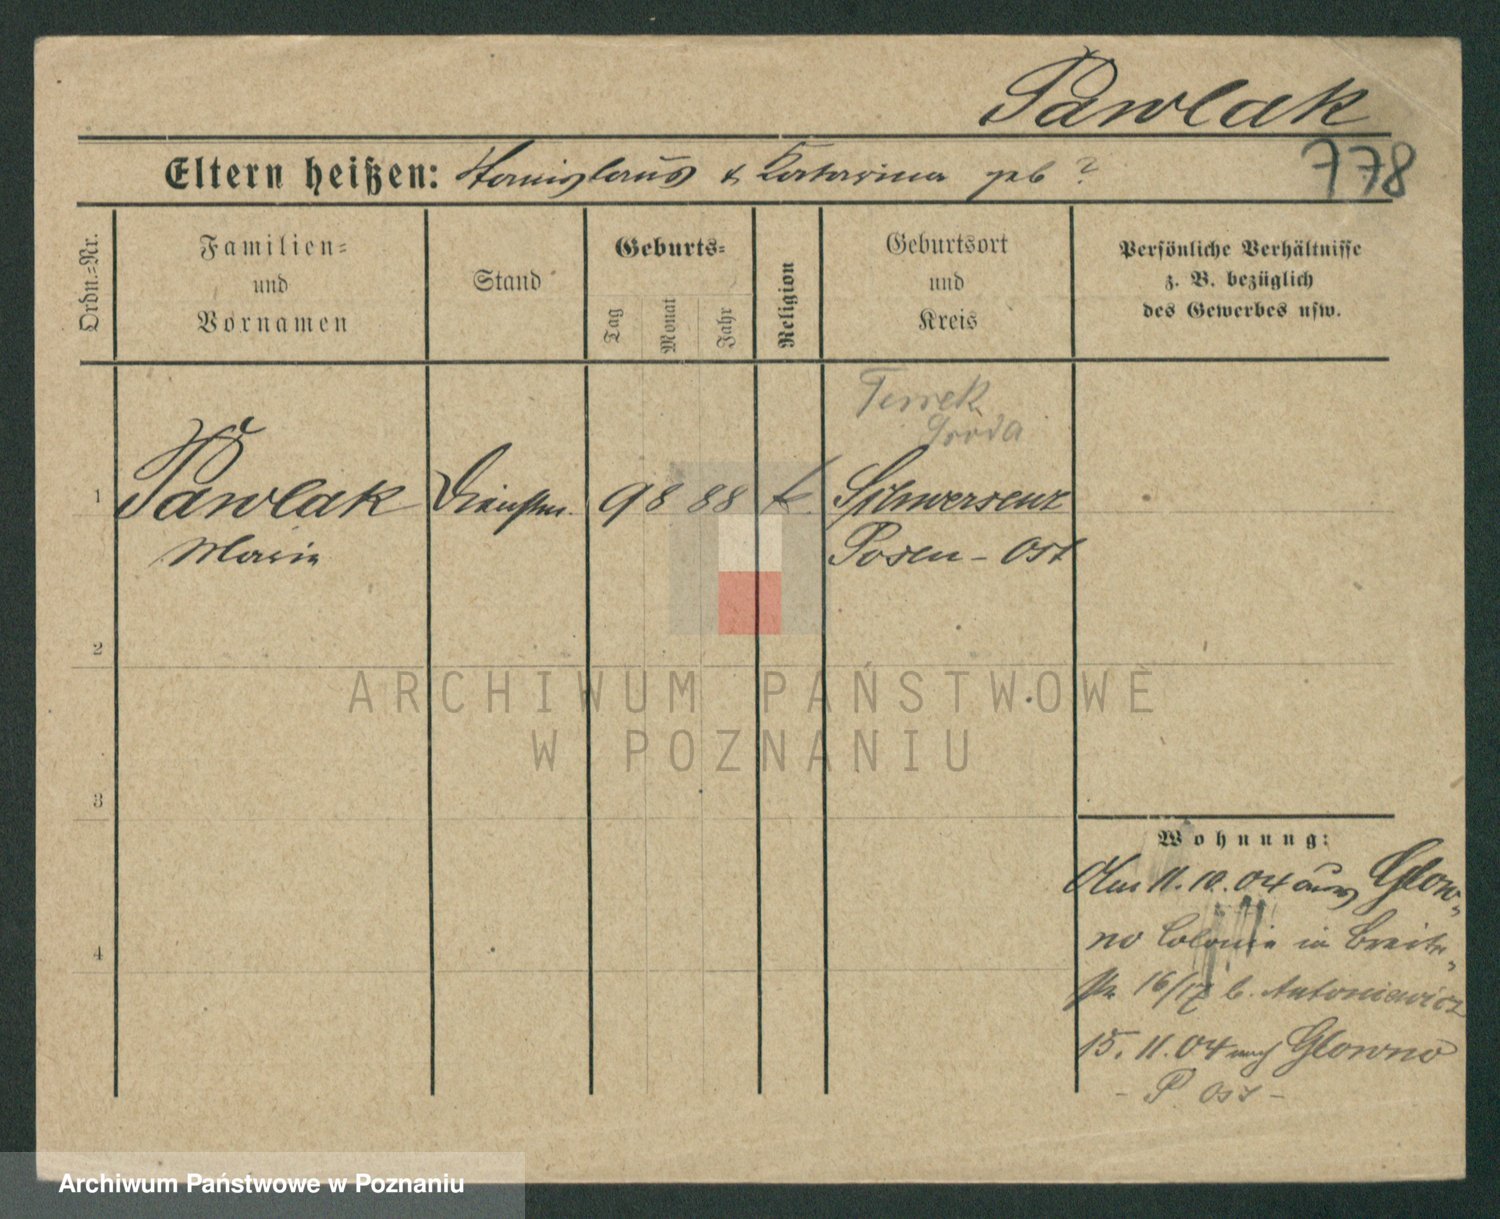 Pawlak
Eltern heißen: Stanislaus & Katarina geb ?
778
Ordn.=Nr.
Familien=
und
Vornamen
Stand
Geburts=
Tag
Monat
Jahr
Religion
Geburtsort
und
Kreis
Persönliche Verhältnisse
z. B. bezüglich
des Gewerbes usw.
Sroda
1 Pawlak 9 8 88 k. Schwersenz
Marie Posen - Ost
2
ARCHIWUM PAŃSTWOWE
W POZNANIU
3
4
Wohnung:
Am 11. 10. 04 aus Glow-
no Colonie in Breite-
str 16/17 b. Antoniewicz
15. 11. 04 nach Glowno
- P Ost -
Archiwum Państwowe w Poznaniu